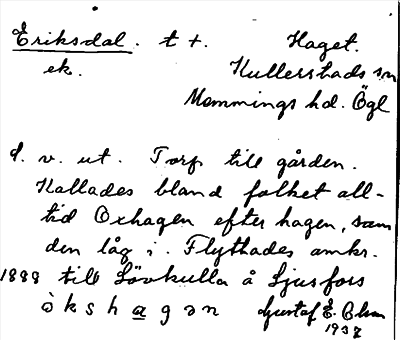 Eriksdal. t +. Haget.
ek. Kullerstads sn
Memmings hd. Ögl
d. v. ut. Torp till gården.
Kallades bland folket all-
tid Oxhagen efter hagen, som
den låg i. Flyttades omkr.
1888 till Lövkulla å Ljusfors
òkshagən Gustaf E. Olson
1937